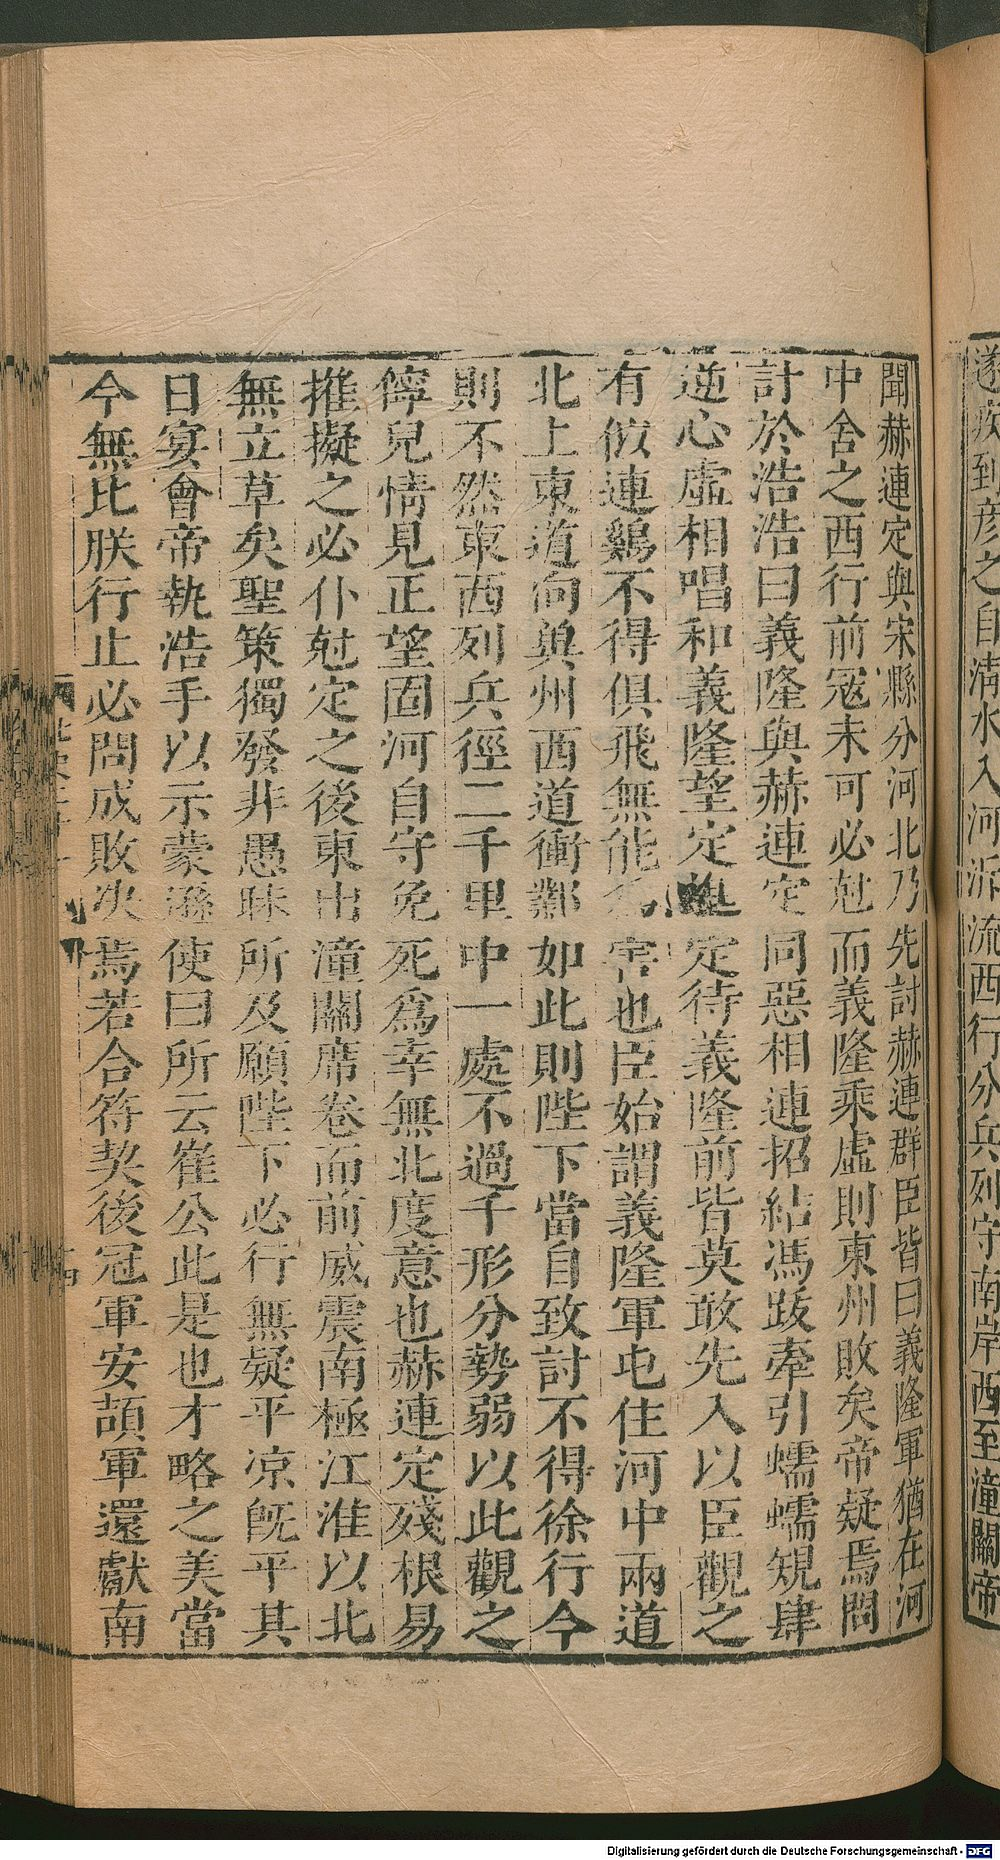 遂疾到彦之自淸水入河泝流西行分兵列守南岸西至潼關帝
聞赫連定與宋縣分河北乃先討赫連群臣皆曰義隆軍猶在河
中舍之西行前寇未可必尅而義隆乘虛則東州敗矣帝疑焉問
計於浩浩曰義隆與赫連定同惡相連招結馮跋牽引蠕蠕規肆
逆心虛相唱和義隆望定進定待義隆前皆莫敢先入以臣觀之
有似連鷄不得俱飛無能爲害也臣始謂義隆軍屯住河中兩道
北上東道向兾州西道衝鄴如此則陛下當自致討不得徐行今
則不然東西列兵徑二千里中一處不過千形分勢弱以此觀之
儜兒情見正望固河自守免死爲幸無北度意也赫連定殘根易
摧擬之必仆尅定之後東出潼關席卷而前威震南極江淮以北
無立草矣聖策獨發非愚昧所及願陛下必行無疑平凉旣平其
日宴會帝執浩手以示蒙遜使曰所云崔公此是也才略之美當
今無比朕行止必問成敗决焉若合符契後冠軍安頡軍還獻南
Digitalisierung gefördert durch die Deutsche Forschungsgemeinschaft - DFG